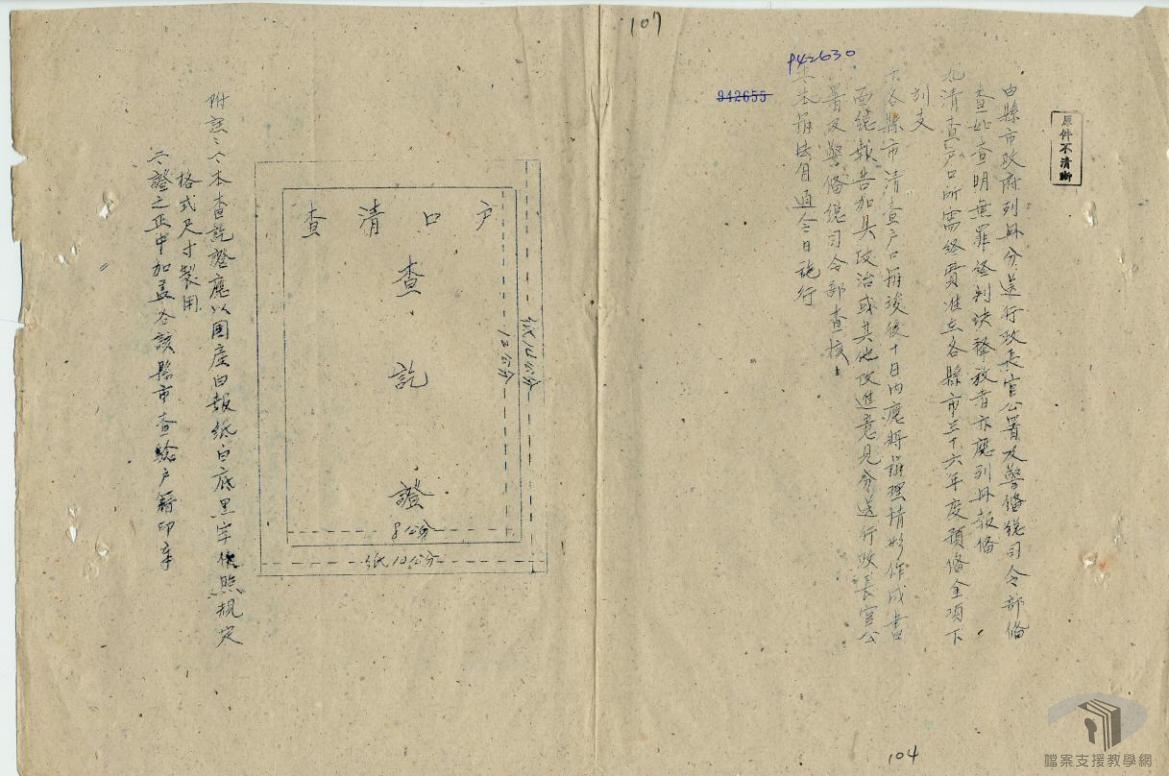 107
942630
942655
原件不清晰
由縣市政府列冊分送行政長官公署及警備總司令部備
查如查明無罪經判決釋放者亦應列冊報備
九清查戶口所需經費准在各縣市三十六年度預備金項下
列支
各縣市清查戶口辦竣後十日內應將辦理情形作成書
面總報告加具政治或其他改進意見分送行政長官公
署及警備總司令部查核
本辦法自通令日施行
104
戶口清查
查訖證
紙16公分
12公分
8公分
紙12公分
附註：一、本查訖證應以國產白報紙白底黑字依照規定
格式尺寸製用
二、證之正中加蓋各該縣市查驗戶籍印章
檔案支援教學網